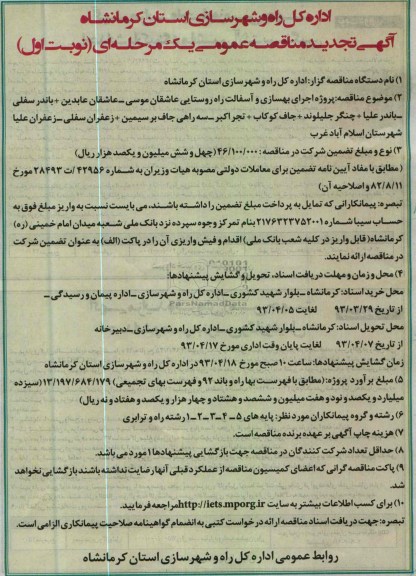 اداره کل راه و شهرسازی استان کرمانشاه
آگهی تجدید مناقصه عمومی یک مرحله ای (نوبت اول)
۱) نام دستگاه مناقصه گزار: اداره کل راه و شهرسازی استان کرمانشاه
۲) موضوع مناقصه: پروژه اجرای بهسازی و آسفالت راه روستایی عاشقان موسی _ عاشقان عابدین + باندر سفلی
_ باندر علیا + چنگر جلیلوند + جاف کوکاب + نجراکبر _ سه راهی جاف بر سیمین + زعفران سفلی _ زعفران علیا
شهرستان اسلام آباد غرب
۳) نوع و مبلغ تضمین شرکت در مناقصه: ۴۶/۱۰۰/۰۰۰ (چهل و شش میلیون و یکصد هزار ریال)
(مطابق با مفاد آیین نامه تضمین برای معاملات دولتی مصوبه هیات وزیران به شماره ۴۲۹۵۶/ت ۲۸۴۹۳ مورخ
۸۲/۸/۱۱ و اصلاحیه آن)
تبصره: پیمانکارانی که تمایل به پرداخت مبلغ تضمین را داشته باشند، می بایست نسبت به واریز مبلغ فوق به
حساب سیبا شماره ۲۱۷۶۳۲۳۷۵۲۰۰۱ بنام تمرکز وجوه سپرده نزد بانک ملی شعبه میدان امام خمینی (ره)
کرمانشاه (قابل واریز در کلیه شعب بانک ملی) اقدام و فیش واریزی آن را در پاکت (الف) به عنوان تضمین شرکت
در مناقصه ارائه نمایند.
۴) محل و زمان و مهلت دریافت اسناد، تحویل و گشایش پیشنهادها:
محل خرید اسناد: کرمانشاه _ بلوار شهید کشوری _ اداره کل راه و شهرسازی _ اداره پیمان و رسیدگی _
از تاریخ ۹۳/۰۳/۲۹ لغایت ۹۳/۰۴/۰۵
محل تحویل اسناد: کرمانشاه _ بلوار شهید کشوری _ اداره کل راه و شهرسازی _ دبیرخانه
از تاریخ ۹۳/۰۴/۰۷ لغایت پایان وقت اداری مورخ ۹۳/۰۴/۱۷
زمان گشایش پیشنهادها: ساعت ۱۰ صبح مورخ ۹۳/۰۴/۱۸ در اداره کل راه و شهرسازی استان کرمانشاه
۵) مبلغ برآورد پروژه: (مطابق با فهرست بها راه و باند ۹۲ و فهرست بهای تجمیعی) ۱۳/۱۹۷/۶۸۴/۱۷۹ (سیزده
میلیارد و یکصد و نود و هفت میلیون و ششصد و هشتاد و چهار هزار و یکصد و هفتاد و نه ریال)
۶) رشته و گروه پیمانکاران مورد نظر: پایه های ۵_۴_۳_۲_۱ رشته راه و ترابری
۷) هزینه چاپ آگهی بر عهده برنده مناقصه است.
۸) حداقل تعداد شرکت کنندگان در مناقصه جهت بازگشایی پیشنهادها ۱ مورد می باشد.
۹) پاکت مناقصه گرانی که اعضای کمیسیون مناقصه از عملکرد قبلی آنها رضایت نداشته باشند بازگشایی نخواهد
شد.
۱۰) برای کسب اطلاعات بیشتر به سایت http://iets.mporg.ir مراجعه فرمایید.
تبصره: جهت دریافت اسناد مناقصه ارائه درخواست کتبی به انضمام گواهینامه صلاحیت پیمانکاری الزامی است.
روابط عمومی اداره کل راه و شهرسازی استان کرمانشاه